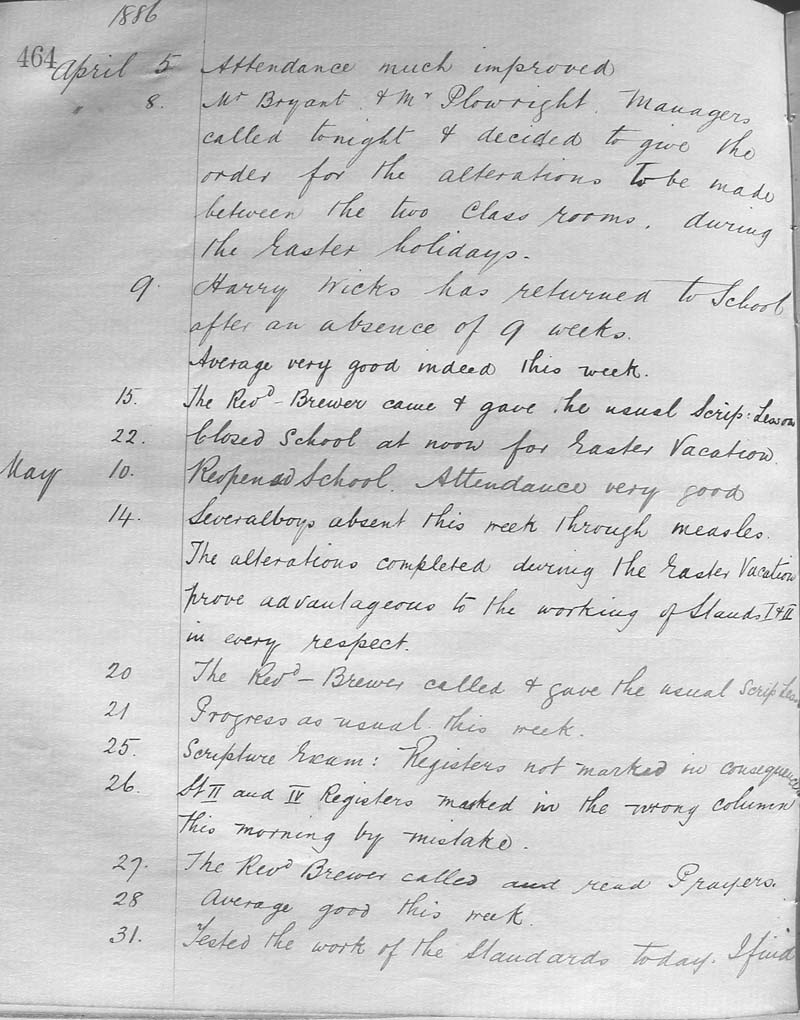 1886
464
April 5 Attendance much improved
" 8. Mr Bryant & Mr Plowright. Managers
called tonight & decided to give the
order for the alterations to be made
between the two Class rooms, during
the Easter holidays.
9. Harry Wicks has returned to School
after an absence of 9 weeks.
Average very good indeed this week.
15. The Revd - Brewer came & gave the usual Scrip: Lesson
22. Closed School at noon for Easter Vacation.
May 10. Reopened School. Attendance very good
14. Several boys absent this week through measles.
The alterations completed during the Easter Vacation
prove advantageous to the working of Stands I & II
in every respect.
20 The Revd - Brewer called & gave the usual Scrip Less
21 Progress as usual this week.
25. Scripture Exam: Registers not marked in consequence
26. St II and IV Registers marked in the wrong column
this morning by mistake.
27. The Revd Brewer called and read Prayers.
28 Average good this week.
31. Tested the work of the Standards today. I find